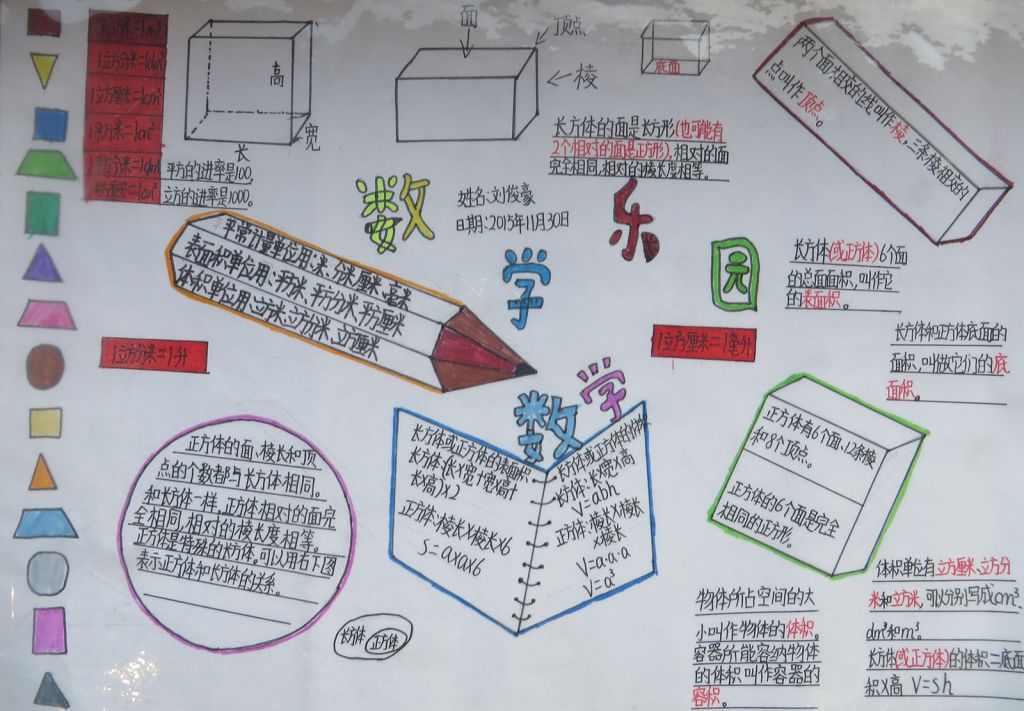 1立方米=1m³
1立方分米=1dm³
1立方厘米=1cm³
1平方米=1m²
1平方分米=1dm²
1平方厘米=1cm²
平方的进率是100,
立方的进率是1000。
高
长
宽
面
顶点
棱
底面
长方体的面是长方形(也可能有
2个相对的面是正方形),相对的面
完全相同,相对的棱长度相等。
两个面相交的线叫作棱,三条棱相交的
点叫作顶点。
数学乐园
姓名:刘俊豪
日期:2015年11月30日
平常计量单位用:米、分米、厘米、毫米
表面积单位用:平方米、平方分米、平方厘米
体积单位用:立方米、立方分米、立方厘米
1立方分米=1升
1立方厘米=1毫升
长方体(或正方体)6个面
的总面面积,叫作它
的表面积。
长方体和正方体底面的
面积,叫做它们的底
面积。
正方体的面、棱长和顶
点的个数都与长方体相同。
和长方体一样,正方体相对的面完
全相同,相对的棱长度相等。
正方体是特殊的长方体。可以用右下图
表示正方体和长方体的关系。
长方体
正方体
数学
长方体或正方体的表面积
长方体:(长X宽+宽X高+
长X高)X2
正方体:棱长X棱长X6
S=axax6
长方体或正方体的体积
长方体:长X宽X高
V=abh
正方体:棱长X棱长
X棱长
V=a·a·a
V=a³
正方体有6个面、12条棱
和8个顶点。
正方体的6个面是完全
相同的正方形。
物体所占空间的大
小叫作物体的体积。
容器所能容纳物体
的体积叫作容器的
容积。
体积单位有立方厘米、立方分
米和立方米,可以分别写成cm³、
dm³和m³。
长方体(或正方体)的体积=底面
积X高 V=sh